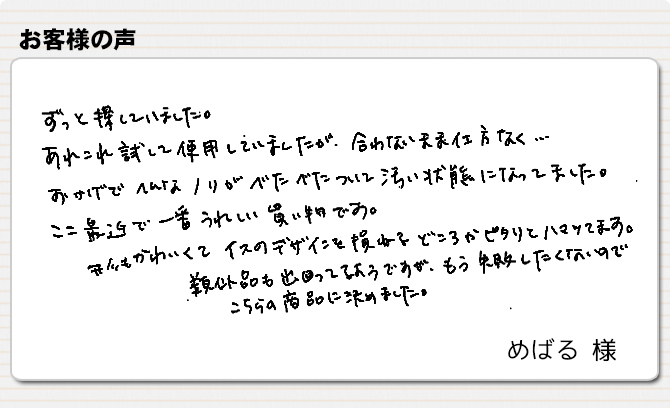 お客様の声
ずっと探していました。
あれこれ試して使用していましたが、合わないまま仕方なく…
おかげでヘンなノリがべたべたついて汚い状態になってました。
ここ最近で一番うれしい買い物です。
もかわいくてイスのデザインを損ねるどころかピタリとハマってます。
類似品も出回ってるようですが、もう失敗したくないので
こちらの商品に決めました。
めばる 様